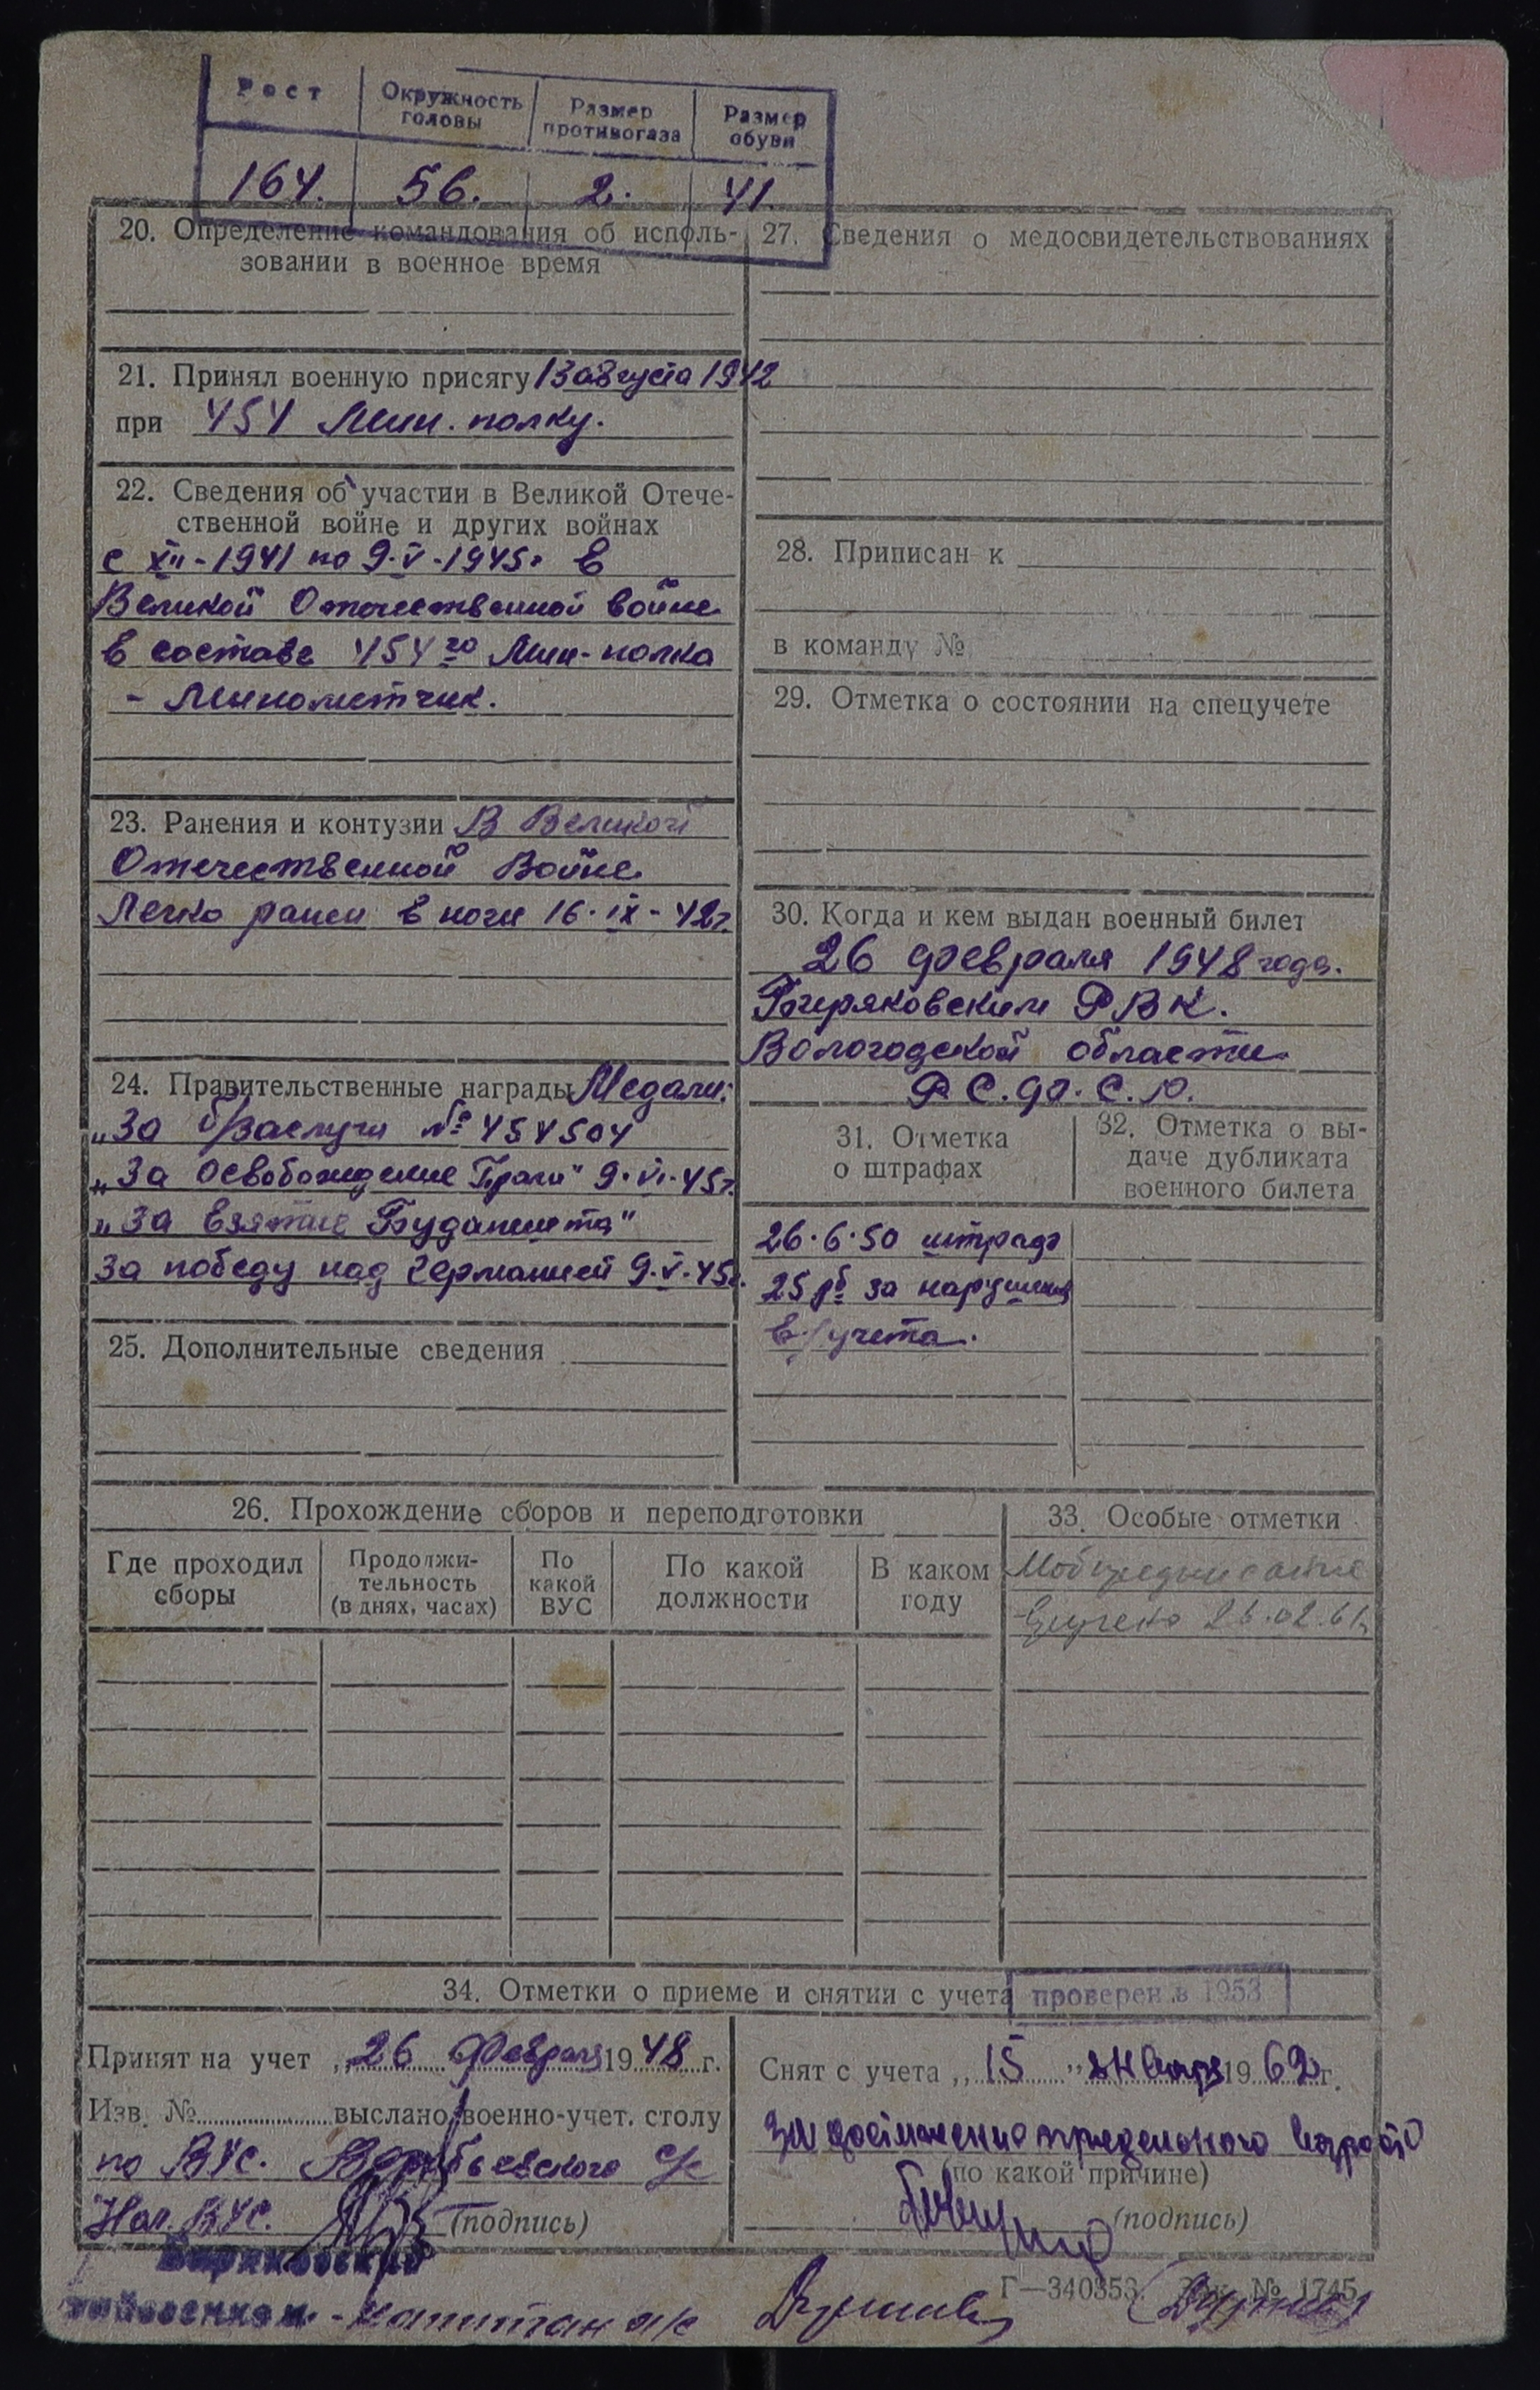 Рост
Окружность головы
Размер противогаза
Размер обуви
164.
56.
2.
41.
20. Определение командования об исполь-
зовании в военное время
21. Принял военную присягу 13 августа 1942
при 454 Мин. полку.
22. Сведения об участии в Великой Отече-
ственной войне и других войнах
с XII-1941 по 9.V-1945г в
Великой Отечественной войне
в составе 454го Мин-полка
- Минометчик.
23. Ранения и контузии В Великой
Отечественной Войне
Легко ранен в ноги 16.IX-42г.
24. Правительственные награды Медали:
„За б/заслуги № 454504
„За Освобождение Праги" 9.VI.45г.
„За взятие Будапешта"
За победу над Германией 9.V.45г.
25. Дополнительные сведения
27. Сведения о медосвидетельствованиях
28. Приписан к
в команду №
29. Отметка о состоянии на спецучете
30. Когда и кем выдан военный билет
26 февраля 1948 года.
Биряковским РВК.
Вологодской области
Р.С.Ф.С.Р.
31. Отметка
о штрафах
26.6.50 штраф
25 рб за нарушения
в/учета.
32. Отметка о вы-
даче дубликата
военного билета
26. Прохождение сборов и переподготовки
Где проходил
сборы
Продолжи-
тельность
(в днях, часах)
По
какой
ВУС
По какой
должности
В каком
году
33. Особые отметки
Мобпредписание
вручено 26.02.61г
34. Отметки о приеме и снятии с учета
проверен в 1953
Принят на учет „26 февраля 1948 г.
Изв. № выслано военно-учет. столу
по ВУС. Воробьевского с/с
Нач. ВУС. (подпись)
Биряковский
райвоенком - капитан а/с
Снят с учета „15" января 1962 г.
за достижение предельного возраста
(по какой причине)
(подпись)
Г—340353. Зак. № 1745